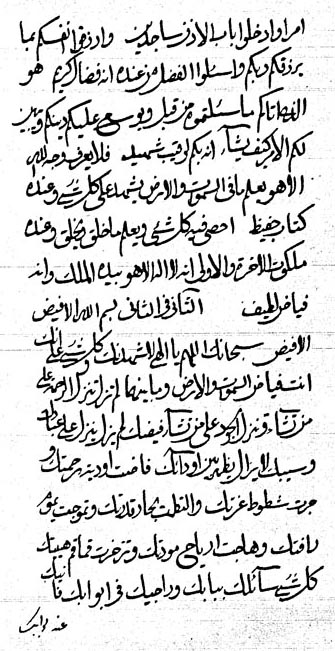 امرا وادخلوا باب الاذن ساجدين وارزقوا انفسكم بما
يرزقكم ربكم واسئلوا الفضل من عنده انه فضال كريم هو
الذي اتاكم ما سئلتموه من قبل ويوسع عليكم دينكم ويبين
لكم الامر كيف يشاء انه بكم لرقيب شهيد فلا يعرف وجه الله
الا هو يعلم ما في السموات والارض يشهد على كل شيء وعنده
كتاب حفيظ احصى فيه كل شيء ويعلم ما خلق ويخلق وعنده
ملكوت الاخرة والاولى انه لا اله الا هو بيده الملك وانه
فياض لطيف الثاني في الثاني بسم الله الافيض
الافيض سبحانك اللهم يا الهي لاشهدنك وكل شيء على انك
انت فياض السموات والارض وما بينهما لم تزل تنزل الرحمة على
من تشاء وتنزل الجود على من تشاء فيضك لم يزل ينزل على عبادك
وسيبك لا يزال يظهر بين اودائك فاضت اودية رحمتك و
جرت شطوط عزتك والتطمت بحار قدرتك وتموجت يم
رافتك وهاجت ارياح مودتك وتزخرت قمقام هيبتك
كل شيء سائلك ببابك وراجيك في ابوابك فانك